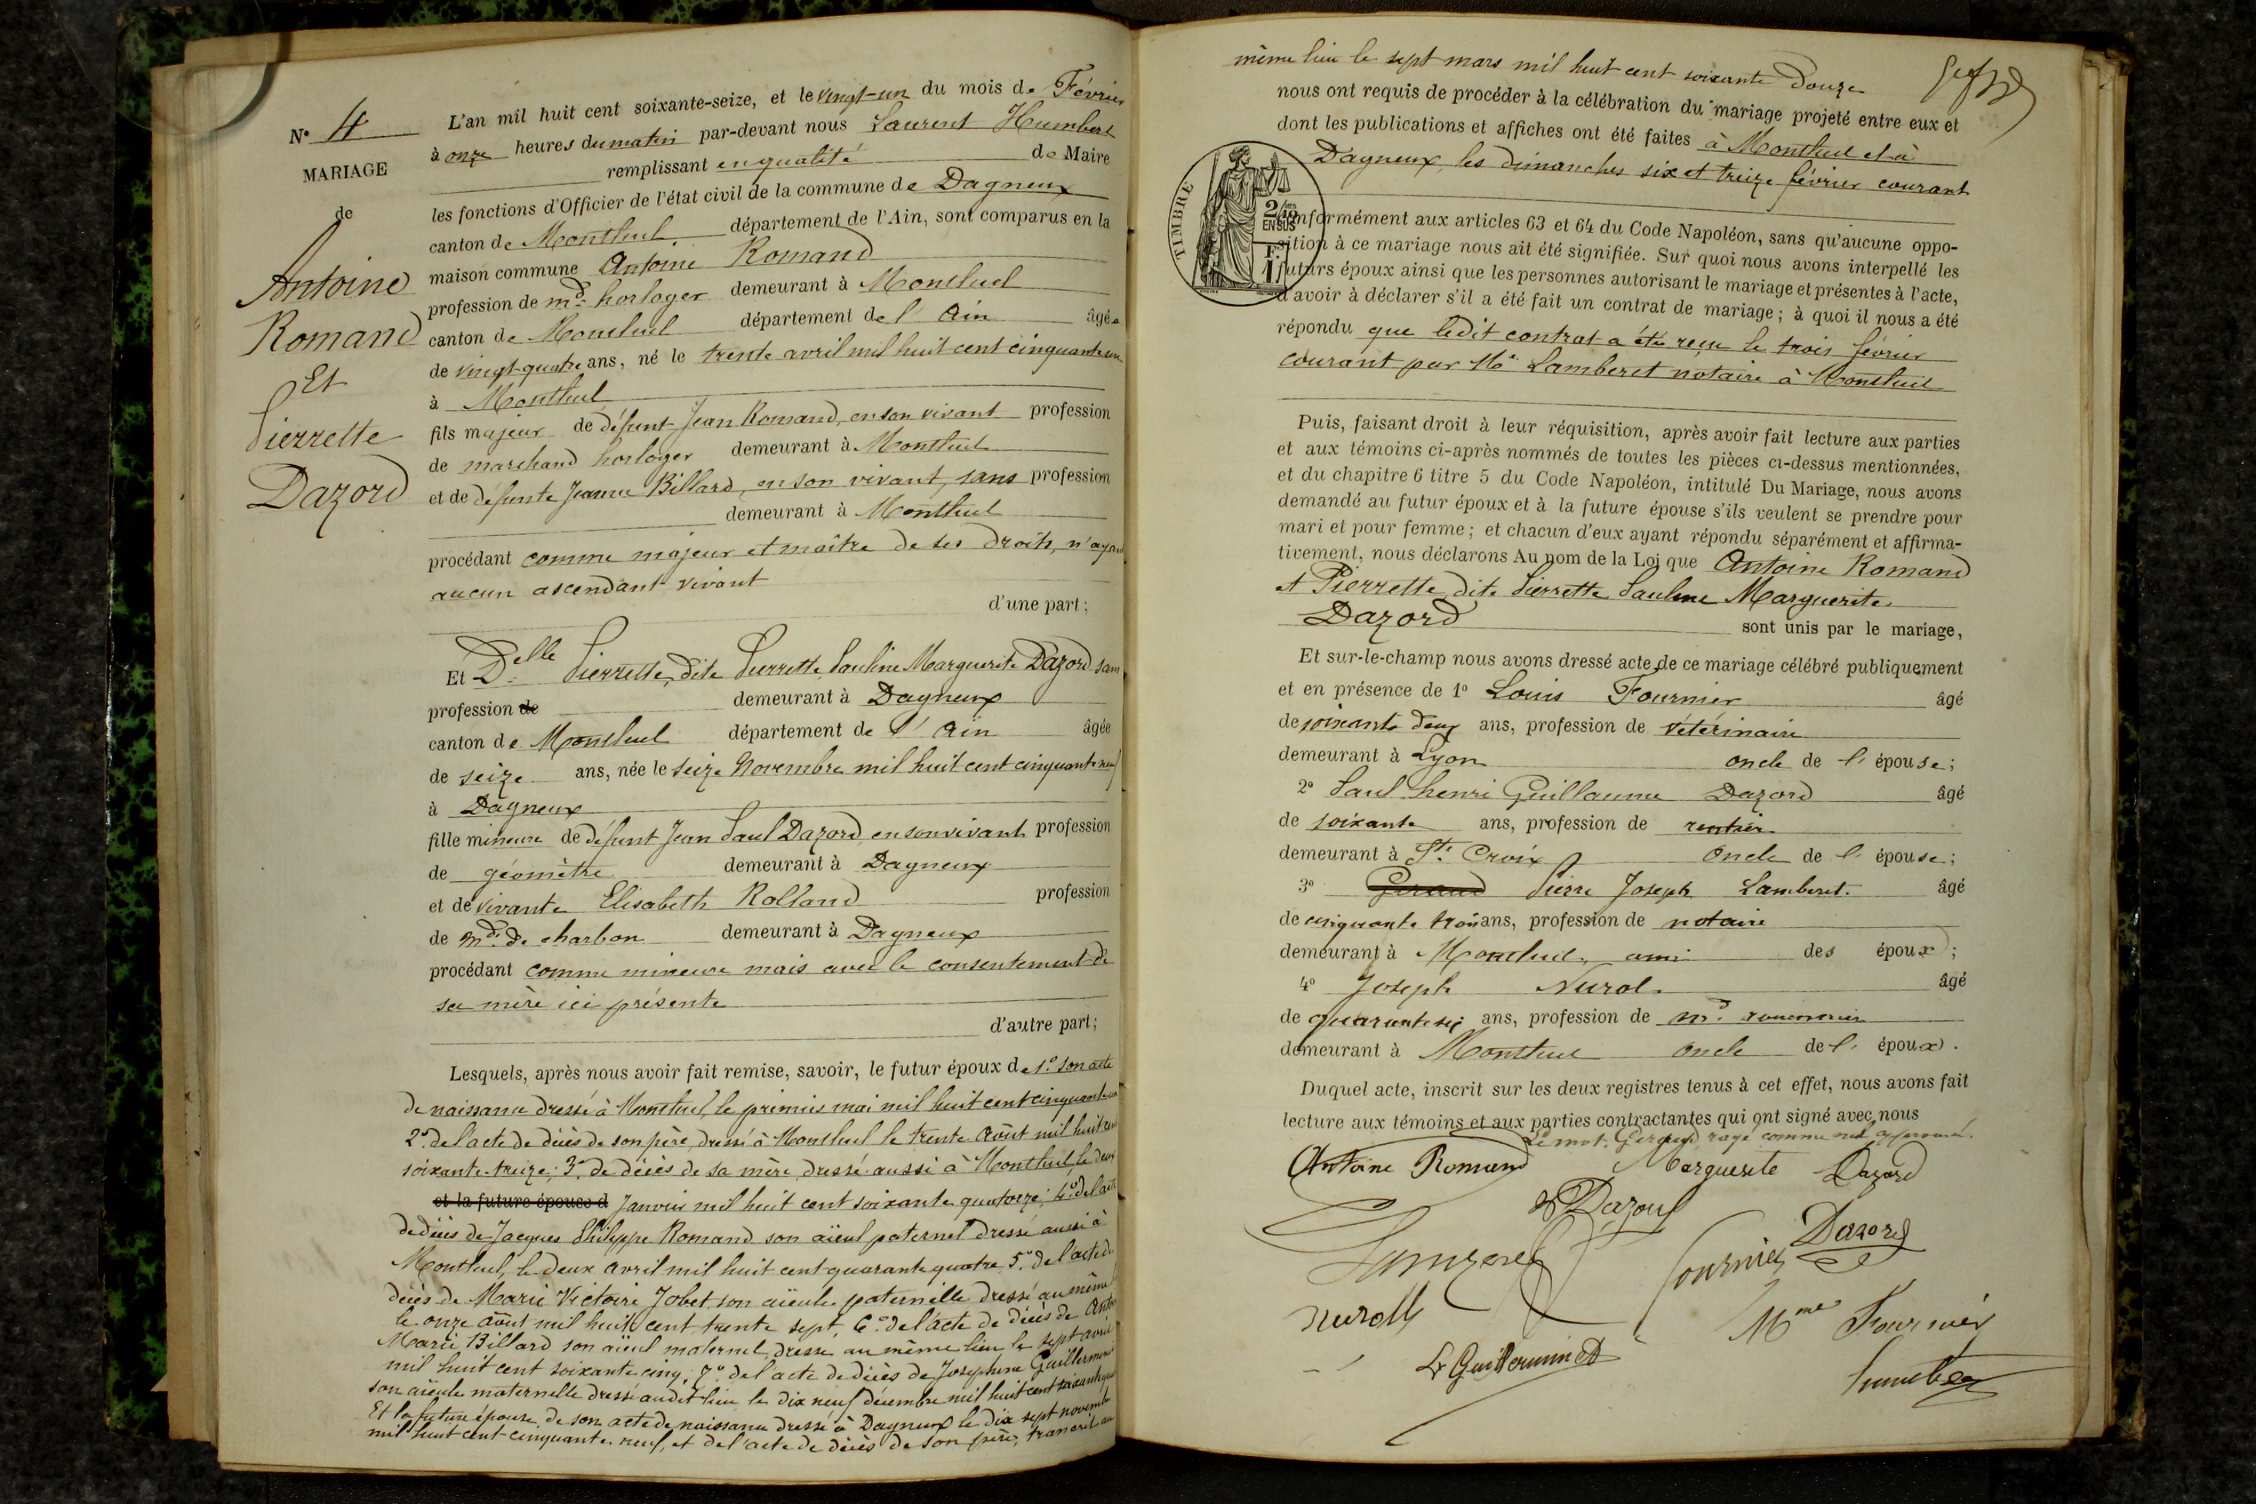 N° 4
MARIAGE
de
Antoine
Romand
Et
Pierrette
Dazord
L'an mil huit cent soixante-seize, et le vingt-un du mois de Février
à onze heures du matin par-devant nous Laurent Humbert
remplissant en qualité de Maire
les fonctions d'Officier de l'état civil de la commune de Dagneux
canton de Montluel département de l'Ain, sont comparus en la
maison commune Antoine Romand
profession de md. horloger demeurant à Montluel
canton de Montluel département de l'Ain âgé
de vingt-quatre ans, né le trente avril mil huit cent cinquante un
à Montluel
fils majeur de défunt Jean Romand, en son vivant profession
de marchand horloger demeurant à Montluel
et de défunte Jeanne Billard, en son vivant, sans profession
demeurant à Montluel
procédant comme majeur et maître de ses droits, n'ayant
aucun ascendant vivant
d'une part;
Et Delle Pierrette, dite Pierrette Pauline Marguerite Dazord sans
profession de demeurant à Dagneux
canton de Montluel département de l'Ain âgée
de seize ans, née le seize Novembre mil huit cent cinquante neuf
à Dagneux
fille mineure de défunt Jean Paul Dazord en son vivant profession
de géomètre demeurant à Dagneux
et de vivante Elisabeth Rolland profession
de mde. de charbon demeurant à Dagneux
procédant comme mineure mais avec le consentement de
sa mère ici présente
d'autre part;
Lesquels, après nous avoir fait remise, savoir, le futur époux de 1° son acte
de naissance dressé à Montluel, le premier mai mil huit cent cinquante un
2° de l'acte de décès de son père, dressé à Montluel le trente Août mil huit cent
soixante-treize; 3° de décès de sa mère dressé aussi à Montluel, le deux
et la future épouse d Janvier mil huit cent soixante quatorze; 4° de l'acte
de décès de Jacques Philippe Romand son aïeul paternel dressé aussi à
Montluel, le deux avril mil huit cent quarante quatre 5° de l'acte de
décès de Marie Victoire Jobet son aïeule paternelle dressé au même
le onze Août mil huit cent trente sept, 6° de l'acte de décès de Anto
Marie Billard son aïeul maternel, dressé au même lieu le sept avril
mil huit cent soixante cinq; 7° de l'acte de décès de Josephine Guillermin
son aïeule maternelle dressé audit lieu le dix neuf décembre mil huit cent soixante
Et la future épouse, de son acte de naissance dressé à Dagneux le dix sept novembre
mil huit cent cinquante neuf, et de l'acte de décès de son père, transcrit au
même lieu le sept mars mil huit cent soixante douze
nous ont requis de procéder à la célébration du mariage projeté entre eux et
dont les publications et affiches ont été faites à Montluel et à
Dagneux, les dimanches six et treize février courant
TIMBRE
2/10 EN SUS
F. 1
conformément aux articles 63 et 64 du Code Napoléon, sans qu'aucune oppo-
sition à ce mariage nous ait été signifiée. Sur quoi nous avons interpellé les
futurs époux ainsi que les personnes autorisant le mariage et présentes à l'acte,
d'avoir à déclarer s'il a été fait un contrat de mariage; à quoi il nous a été
répondu que ledit contrat a été reçu le trois février
courant par Me Lamberet notaire à Montluel
Puis, faisant droit à leur réquisition, après avoir fait lecture aux parties
et aux témoins ci-après nommés de toutes les pièces ci-dessus mentionnées,
et du chapitre 6 titre 5 du Code Napoléon, intitulé Du Mariage, nous avons
demandé au futur époux et à la future épouse s'ils veulent se prendre pour
mari et pour femme; et chacun d'eux ayant répondu séparément et affirma-
tivement, nous déclarons Au nom de la Loi que Antoine Romand
et Pierrette, dite Pierrette Pauline Marguerite
Dazord sont unis par le mariage,
Et sur-le-champ nous avons dressé acte de ce mariage célébré publiquement
et en présence de 1° Louis Fournier âgé
de soixante deux ans, profession de vétérinaire
demeurant à Lyon oncle de l'épouse;
2° Paul henri Guillaume Dazord âgé
de soixante ans, profession de rentier
demeurant à Ste. Croix Oncle de l'épouse;
3° Gerand Pierre Joseph Lamberet âgé
de cinquante trois ans, profession de notaire
demeurant à Montluel, ami des époux;
4° Joseph Nurol âgé
de quarante six ans, profession de md. rouennier
demeurant à Montluel oncle de l'époux.
Duquel acte, inscrit sur les deux registres tenus à cet effet, nous avons fait
lecture aux témoins et aux parties contractantes qui ont signé avec nous
Le mot: Gerand rayé comme nul approuvé.
Antoine Romand Marguerite Dazord
Dazord
Fournier Dazord
Mme Fournier
Humbert